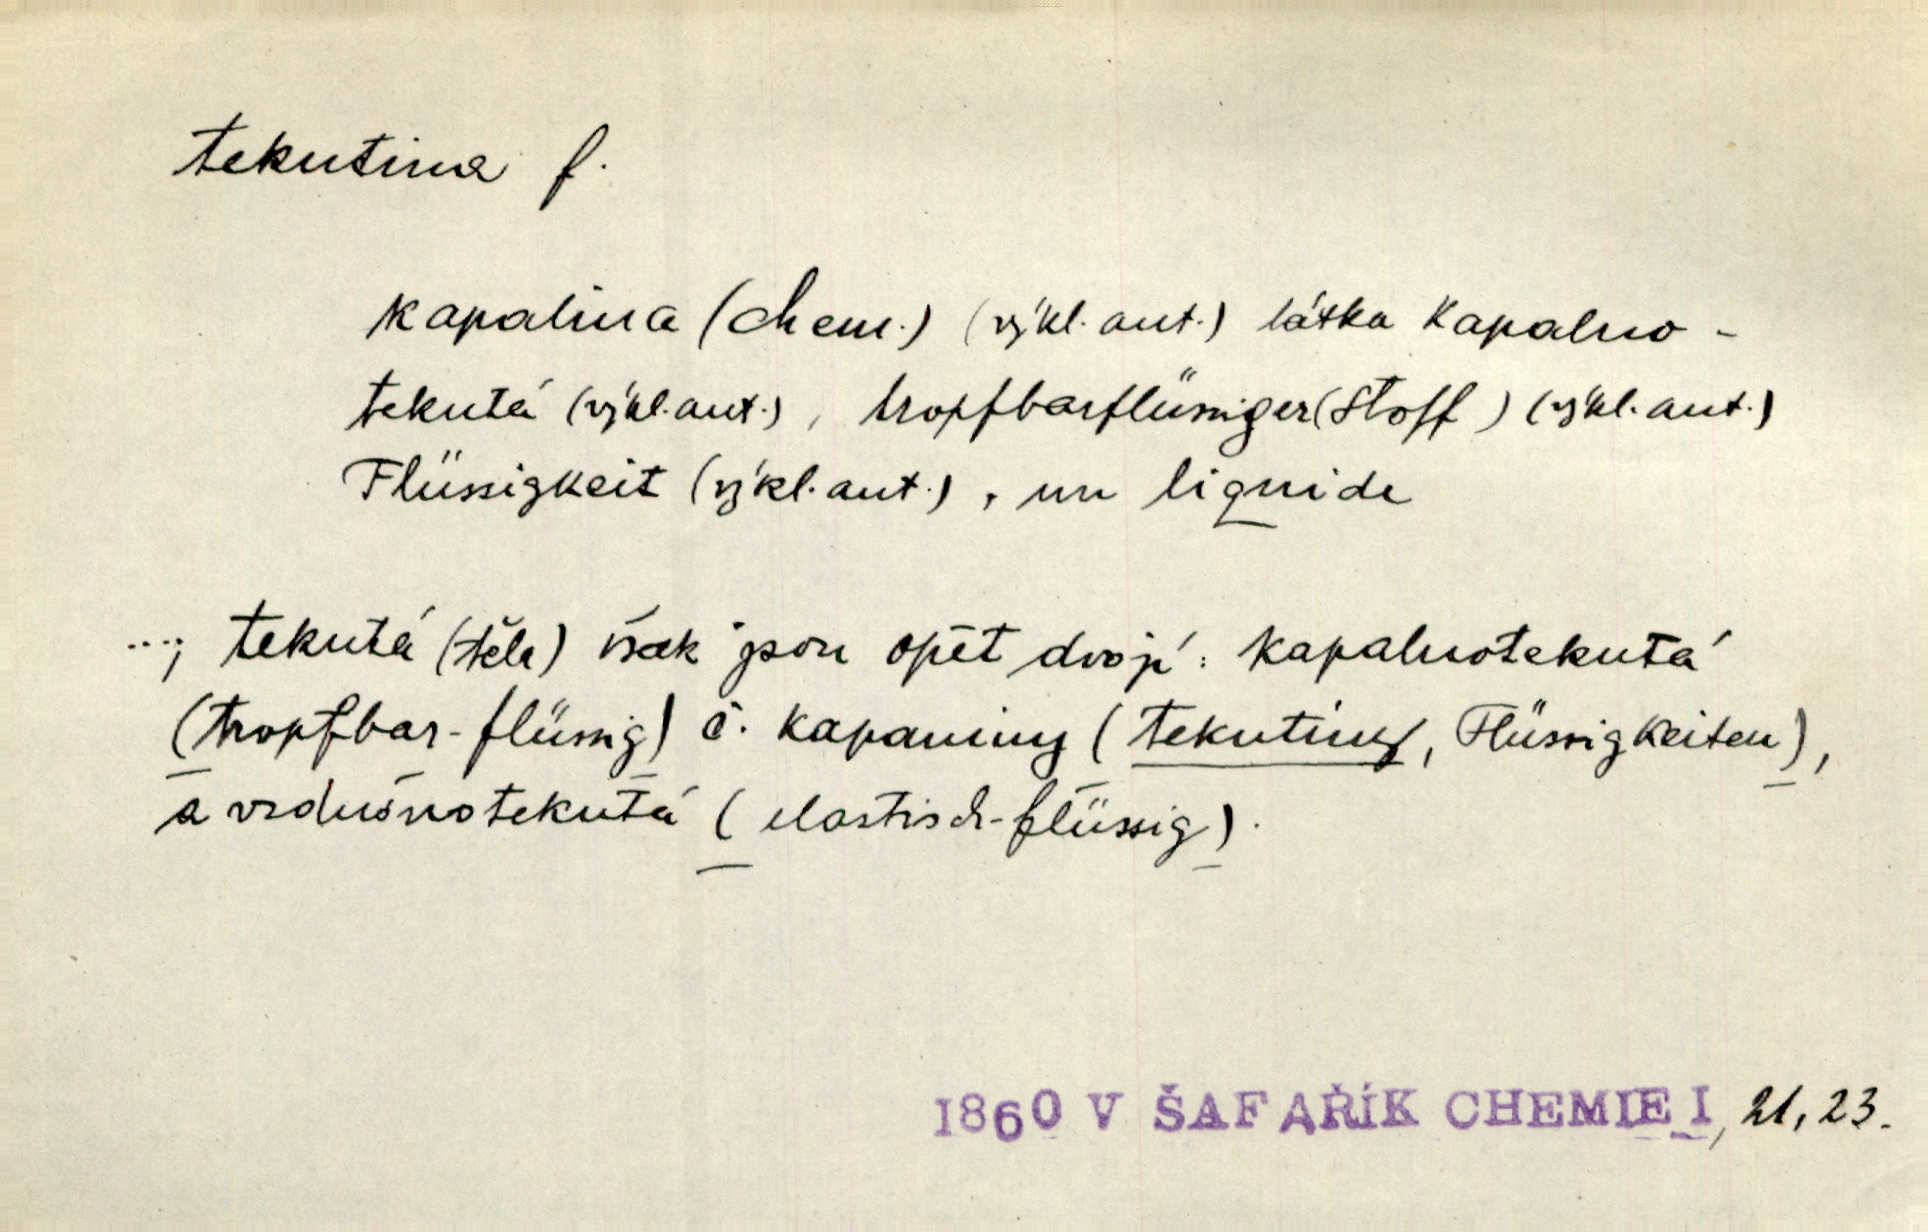 tekutina f.
kapalina (chem.) (výkl. aut.) látka kapalno-
tekutá (výkl. aut.), tropfbarflüssiger (Stoff) (výkl. aut.)
Flüssigkeit (výkl. aut.), un liquide
...; tekutá (těla) však jsou opět dvojí: kapalnotekutá
(tropfbar-flüssig) č. kapaniny (tekutiny, Flüssigkeiten),
a vzdušnotekutá (elastisch-flüssig).
1860 V ŠAFAŘÍK CHEMIE I, 21, 23.